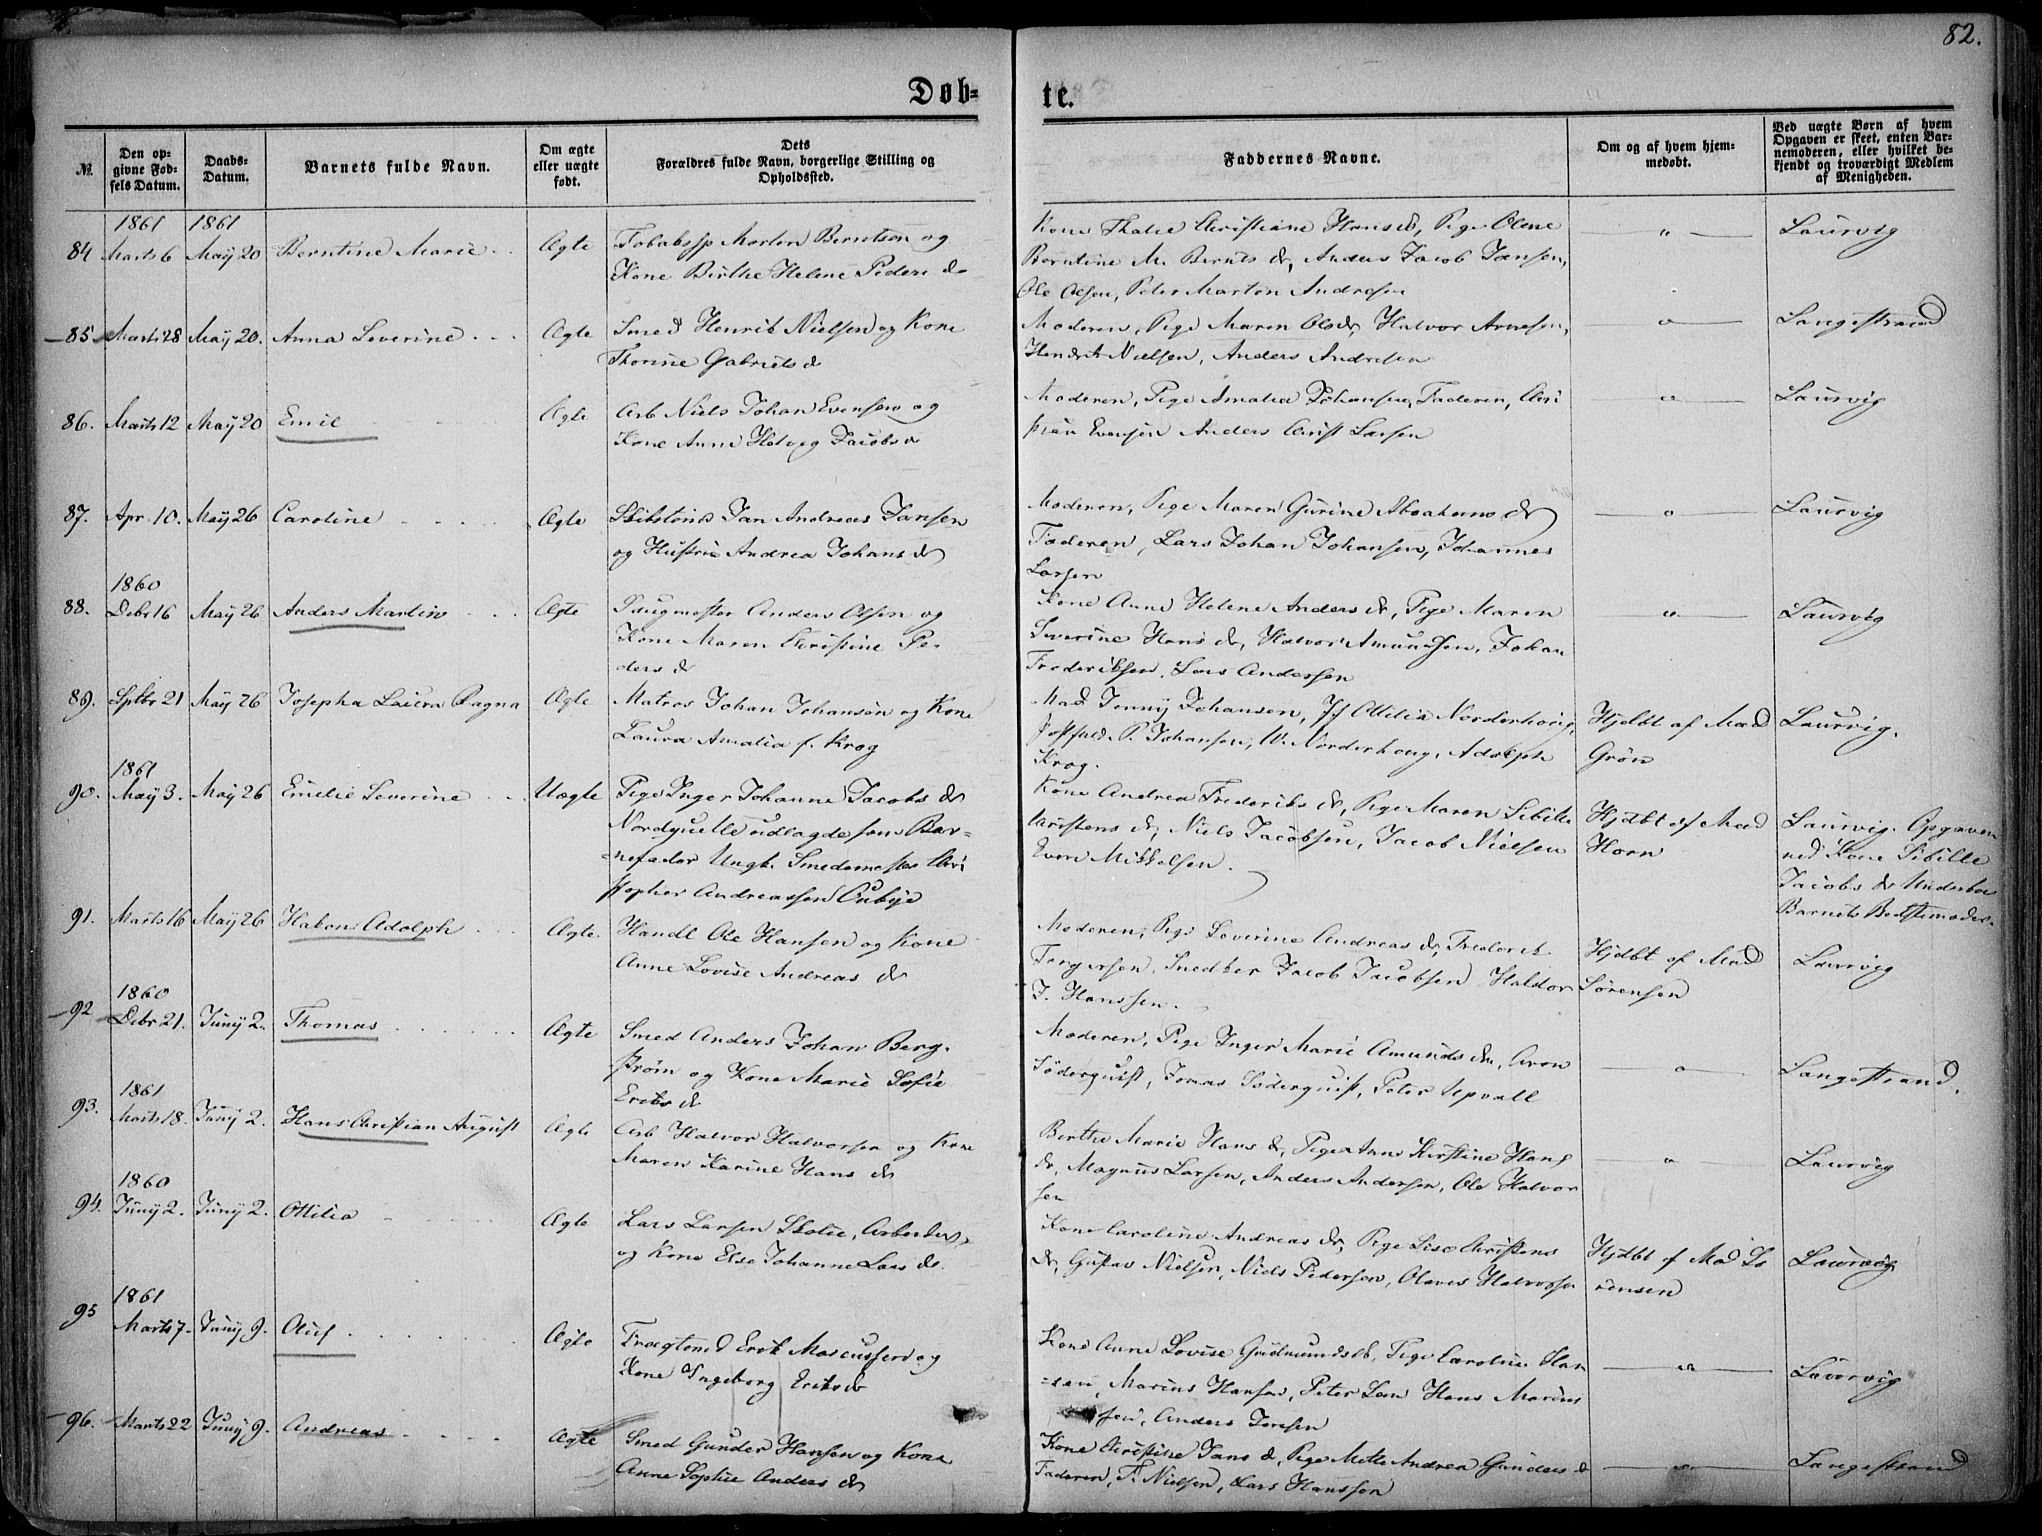 82.
Døb-
te.
№.
Den op-
givne Fød-
sels Datum.
Daabs-
Datum.
Barnets fulde Navn.
Om ægte
eller uægte
født.
Dets
Forældres fulde Navn, borgerlige Stilling og
Opholdssted.
Faddernes Navne.
Om og af hvem hjem-
medøbt.
Ved uægte Børn af hvem
Opgaven er skeet, enten Bar-
nemoderen, eller hvilket be-
kjendt og troværdigt Medlem
af Menigheden.
1861 1861
84 Marts 6 May 20 Berntine Marie Ægte
Tobaksp Morten Berntsen og
Kone Birthe Helene Peders d
Kone Thalie Christiane Hans d, Pige Olene
Berntine M. Bernts d, Anders Jacob Jansen,
Ole Olsen, Peter Martin Andresen
Laurvig
85 Marts 28 May 20. Anna Severine Ægte
Smed Henrik Nielsen og Kone
Thorine Gabriels d
Moderen, Pige Maren Ols d, Halvor Arnesen,
Hendrik Nielsen, Anders Andresen
Langestrand
86. Marts 12 May 20 Emil Ægte
Arb Niels Johan Evensen og
Kone Anne Hedvig Jacobs d
Moderen, Pige Amalia Johansen, Faderen, Chri
stian Evensen Anders Christ Larsen
Laurvig
87. Apr. 10. May 26 Caroline Ægte
Skibstømd Jan Andreas Jansen
og Hustrue Andrea Johans d
Moderen, Pige Maren Gurine Abrahams d
Faderen, Lars Johan Johansen, Johannes
Larsen
Laurvig
1860
88. Debr 16 May 26 Anders Martin Ægte
Saugmester Anders Olsen og
Kone Maren Christine Pe-
ders d
Kone Anne Helene Anders d, Pige Maren
Severine Hans d, Halvor Amundsen, Johan
Frederiksen, Lars Anderssen
Laurvig
89. Sptbr 21 May 26 Josepha Laura Ragna Ægte
Matros Johan Johansen og Kone
Laura Amalia f. Krog
Mad Jenny Johansen, Jf Ottilia Norderhoug,
P. Johansen, W. Norderhoug, Adolph
Krog.
Hjdbt af Mad
Grøn
Laurvig.
1861
90. May 3. May 26 Emilie Severine Uægte
Pige Inger Johanne Jacobs d
Nordquelle udlagde som Bar-
nefader Ungk. Smedemester Chri
stopher Andreassen Aubye
Kone Andrea Frederiks d, Pige Maren Sibille
Christens d, Niels Jacobsen, Jacob Nielsen
Even Mikkelsen.
Hjdbt af Mad
Horn
Laurvig. Opgaven
ved Kone Sibille
Jacobs d
Barnets Bedstemoder.
91. Marts 16 May 26 Hakon Adolph Ægte
Handl Ole Hansen og Kone
Anne Lovise Andreas d
Moderen, Pige Severine Andreas d, Frederik
Torgersen, Snedker Jacob Jacobsen Haldor
J. Hanssen.
Hjdbt af Mad
Sørensen
Laurvig
1860
92 Debr 21. Juny 2. Thomas Ægte
Smed Anders Johan Berg-
strøm og Kone Marie Sofie
Eriks d
Moderen, Pige Inger Marie Amunds d, Aron
Söderquist, Jonas Söderquist, Peter Upvall
Langestrand.
1861
93. Marts 18. Juny 2. Hans Christian August Ægte
Arb Halvor Halvorsen og Kone
Maren Karine Hans d
Birthe Marie Hans d, Pige Anne Kirstine Hans
d, Magnus Larsen, Anders Andersen, Ole Halvor
sen
Laurvig
1860
94. Juny 2. Juny 2. Ottilia Ægte
Lars Larsen Skotte, Arbeider
og Kone Else Johanne Lars d.
Kone Caroline Andreas d, Pige Lise Christens
d, Gustav Nielsen, Niels Pedersen, Olaves Halvorsen
Hjdbt af Mad Sö
rensen
Laurvig
1861
95 Marts 7. Juny 9. Oluf Ægte
Fragtemd Erik Marcussen og
Kone Ingeborg Eriks d
Kone Anne Lovise Gudmunds d, Pige Caroline Han
sen, Marius Hansen, Peter Hans Marius
sen, Anders Jensen
Laurvig
96. Marts 22 Juny 9. Andreas Ægte
Smed Gunder Hansen og Kone
Anne Sophie Anders d
Kone Christine Jans d, Pige Mette Andrea Gunders d
Faderen, F. Nielsen, Lars Hanssen
Langestrand